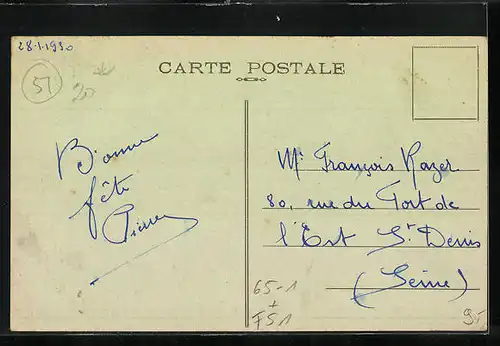 28.1.1930
51
CARTE POSTALE
Bonne
fête
Pierre
Mr François Razer
80, rue du Fort de
l'Est St Denis
(Seine)
65-1
+
F51